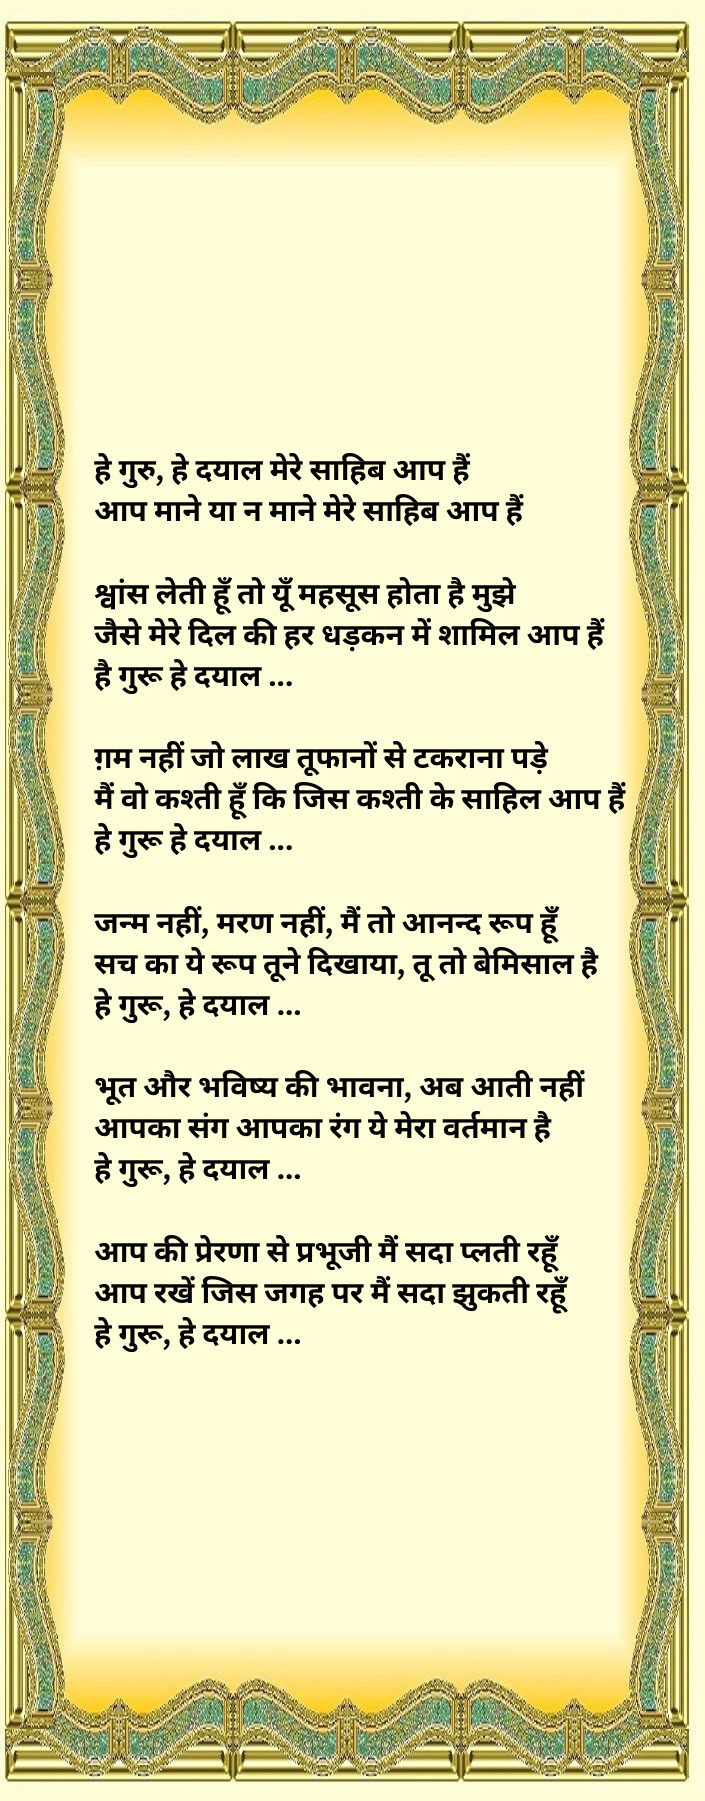 हे गुरु, हे दयाल मेरे साहिब आप हैं
आप माने या न माने मेरे साहिब आप हैं
श्वांस लेती हूँ तो यूँ महसूस होता है मुझे
जैसे मेरे दिल की हर धड़कन में शामिल आप हैं
है गुरू हे दयाल ...
ग़म नहीं जो लाख तूफानों से टकराना पड़े
मैं वो कश्ती हूँ कि जिस कश्ती के साहिल आप हैं
हे गुरू हे दयाल ...
जन्म नहीं, मरण नहीं, मैं तो आनन्द रूप हूँ
सच का ये रूप तूने दिखाया, तू तो बेमिसाल है
हे गुरू, हे दयाल ...
भूत और भविष्य की भावना, अब आती नहीं
आपका संग आपका रंग ये मेरा वर्तमान है
हे गुरू, हे दयाल ...
आप की प्रेरणा से प्रभूजी मैं सदा प्लती रहूँ
आप रखें जिस जगह पर मैं सदा झुकती रहूँ
हे गुरू, हे दयाल ...